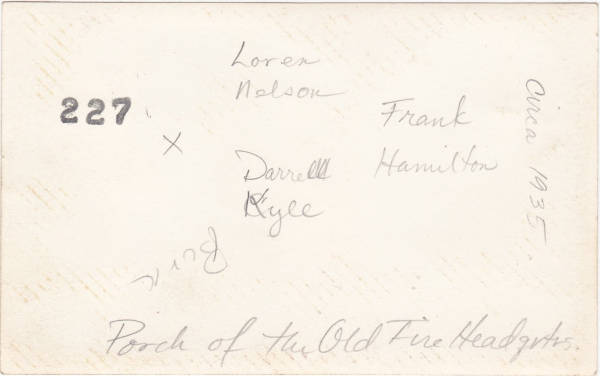 Loren
Nelson
227
Frank
X
Hamilton
Darrell
Kyle
Circa 1935
Porch of the Old Fire Headqrtrs.